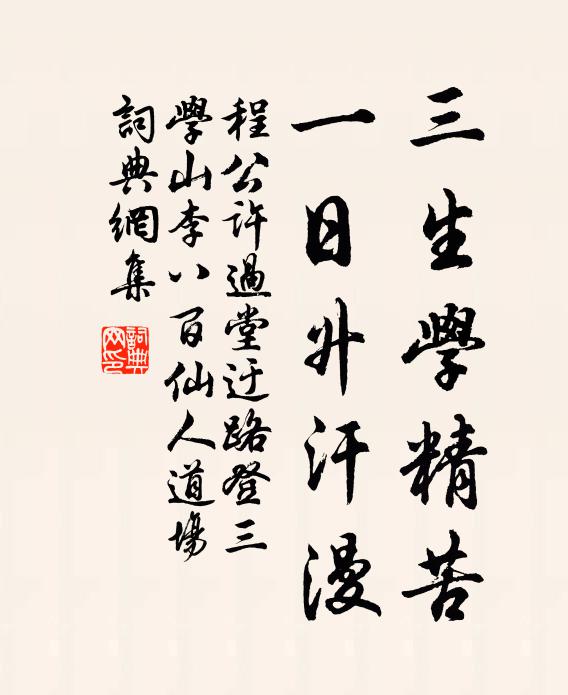 三生學精苦
一日升汗漫
程公許過堂迂路登三
學山李八百仙人道場
詞典網集
詞典網印